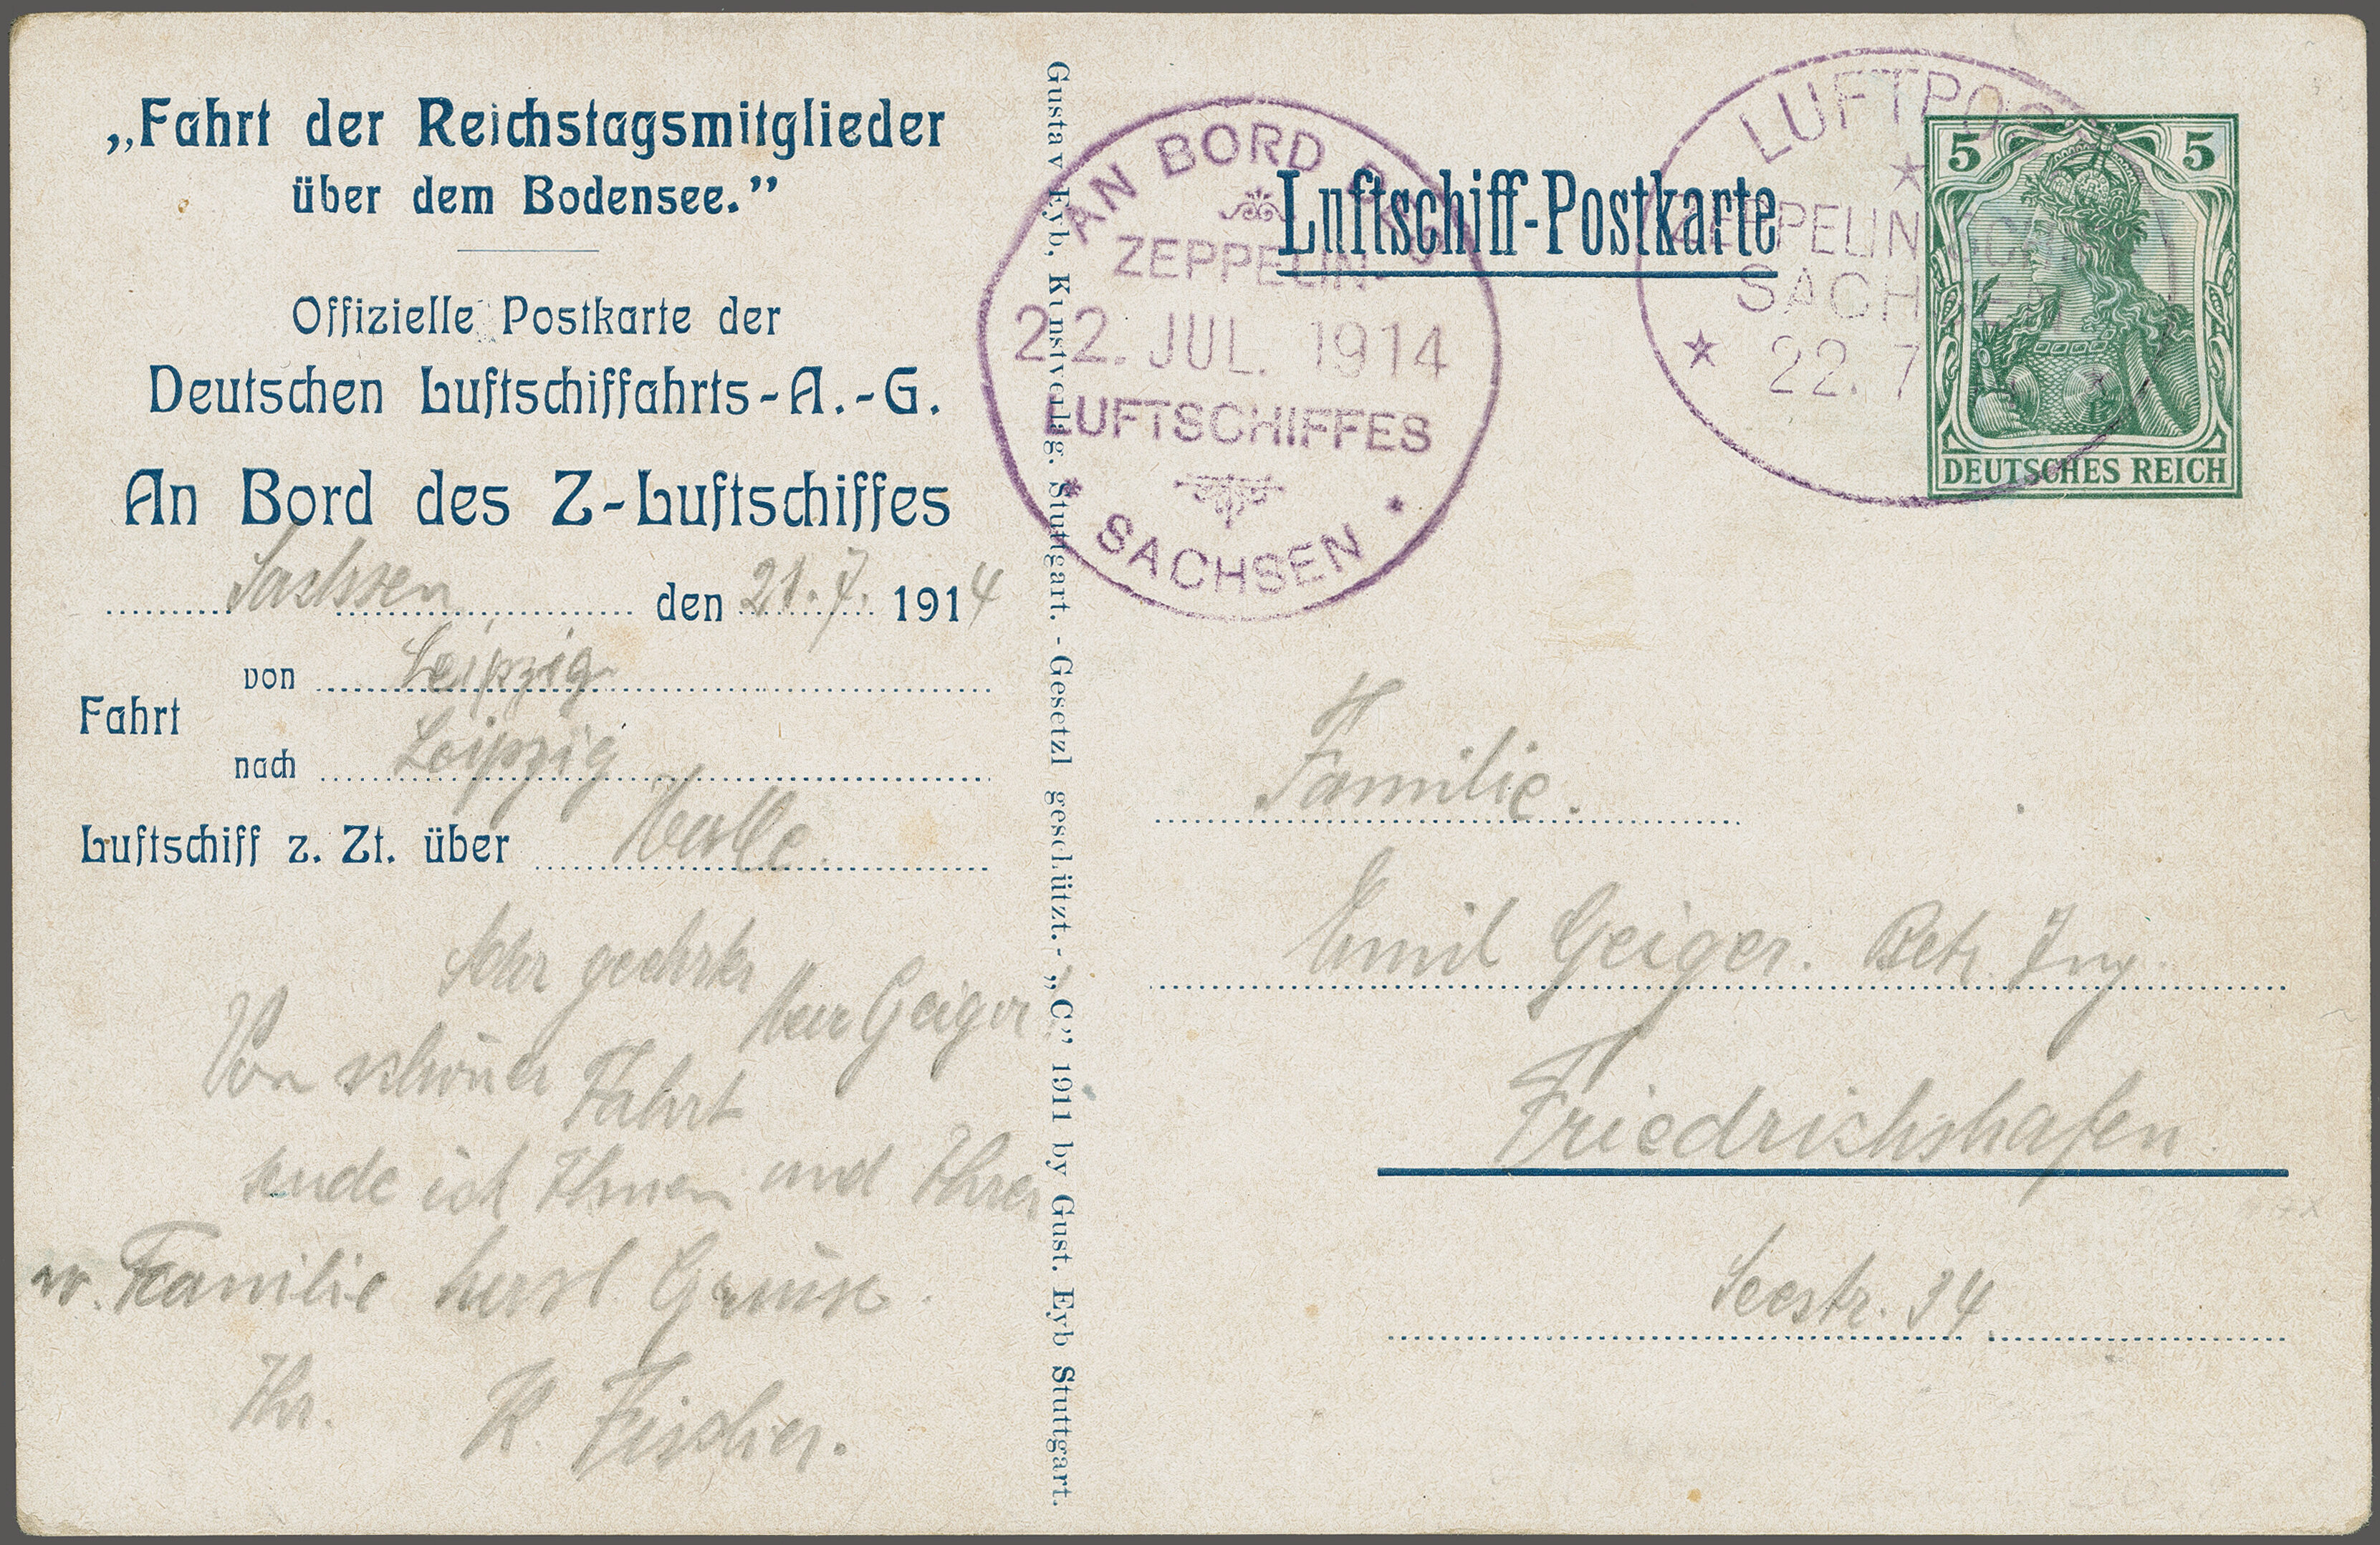 „Fahrt der Reichstagsmitglieder
über dem Bodensee.”
Offizielle Postkarte der
Deutschen Luftschiffahrts-A.-G.
An Bord des Z-Luftschiffes
Sachsen den 21.7. 1914
Fahrt
von Leipzig
nach Leipzig
Luftschiff z. Zt. über Halle.
Sehr geehrter
Herr Geiger!
Von schöner Fahrt
sende ich Ihnen und Ihrer
w. Familie herzl. Grüsse.
Ihr. K. Fischer.
Gustav Eyb, Kunstverlag. Stuttgart. - Gesetzl geschützt. - „C” 1911 by Gust. Eyb Stuttgart.
AN BORD DES
ZEPPELIN-
22. JUL. 1914
LUFTSCHIFFES
SACHSEN
Luftschiff-Postkarte
LUFTPOST
ZEPPELIN
SACH
22. 7
5 5
DEUTSCHES REICH
Familie.
Emil Geiger. Betr. Ing.
Friedrichshafen.
Seestr. 34